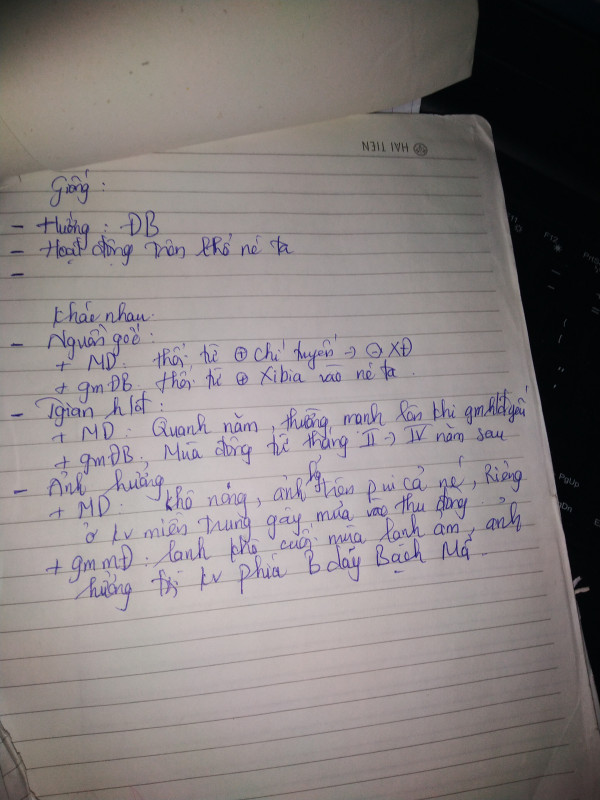 HẢI TIẾN
Giống :
- Hướng : ĐB
- Hoạt động trên khổ nc ta
-
Khác nhau.
- Nguồn gốc :
+ MD : thổi từ ⊕ chí tuyến → ⊖ XĐ
+ gmĐB. thổi từ ⊕ Xibia vào nc ta.
- Tgian hđ :
+ MD : Quanh năm, thường mạnh lên khi gm yếu
+ gmĐB, Mùa đông từ tháng II → IV năm sau
- Ảnh hưởng
+ MD : khô nóng, ảnh hg trên cả nc, Riêng
ở kv miền trung gây mưa vào thu đông
+ gmmĐ : lạnh khô cuối mùa lạnh ẩm, ảnh
hưởng kv phía B dãy Bạch Mã.
FT2
PgUp
PgDn